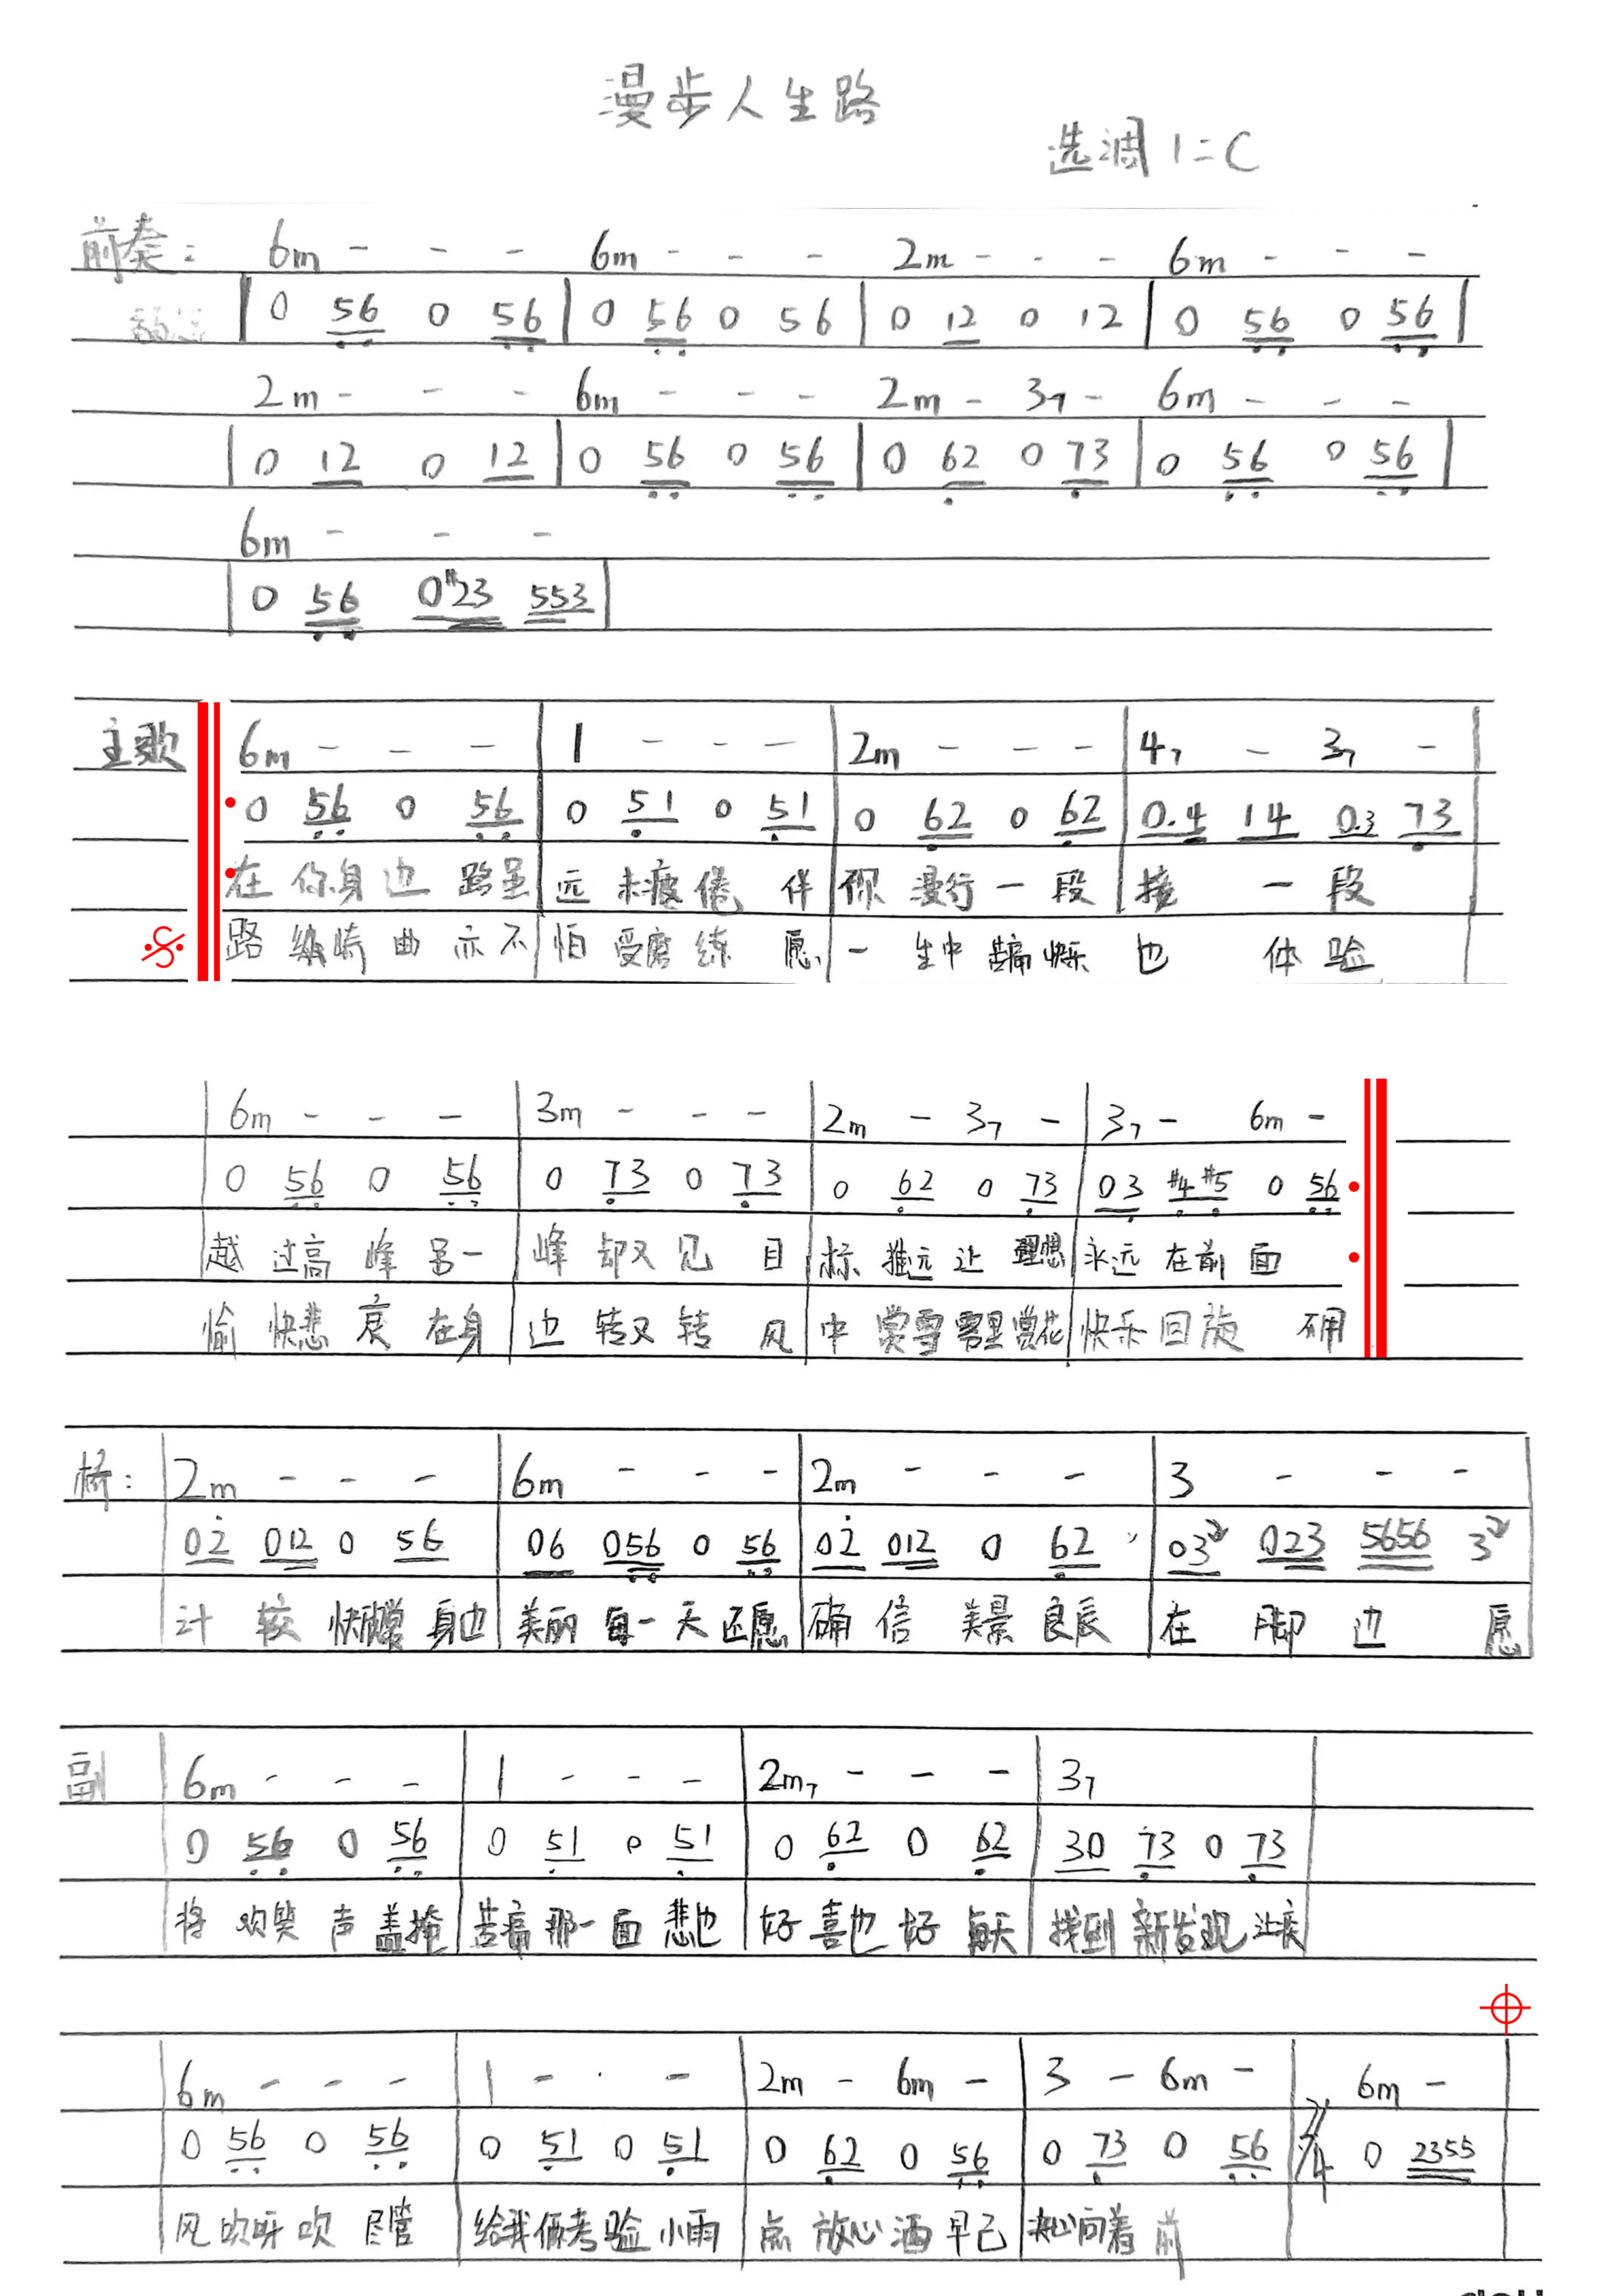 漫步人生路
选调 1=C
前奏: 6m - - - 6m - - - 2m - - - 6m - - -
0 56 0 56 | 0 56 0 56 | 0 12 0 12 | 0 56 0 56 |
2m - - - 6m - - - 2m - 37 - 6m - - -
0 12 0 12 | 0 56 0 56 | 0 62 0 73 | 0 56 0 56 |
6m - - -
0 56 0#23 553
主歌 6m - - - | 1 - - - | 2m - - - | 47 - 37 -
0 56 0 56 | 0 51 0 51 | 0 62 0 62 | 0.4 14 0.3 73
在 你身 边 路虽 | 远 未疲 倦 伴 | 你 漫行 一 段 | 接 一 段
路 崎 曲 亦 不 | 怕 受磨 练 愿 | 一 生中 苦痛 快乐 | 也 体 验
6m - - - | 3m - - - | 2m - 37 - | 37 - 6m -
0 56 0 56 | 0 73 0 73 | 0 62 0 73 | 03 #4#5 0 56
越 过高 峰 另一 | 峰 却又 见 目 | 标 推远 让 理想 | 永远 在前 面
愉 快悲 哀 在身 | 边 转又 转 风 | 中 赏雪 雾里 赏花 | 快乐 回旋 确
桥: 2m - - - | 6m - - - | 2m - - - | 3 - - -
02̇ 012 0 56 | 06 056 0 56 | 02̇ 012 0 62 | 03 023 5656 3
计 较 身边 | 美丽 每一 天 还愿 | 确 信 美景 良辰 | 在 脚 边 愿
副 6m - - - | 1 - - - | 2m7 - - - | 37
0 56 0 56 | 0 51 0 51 | 0 62 0 62 | 30 73 0 73
将 欢笑 声 盖掩 | 苦痛 那一 面 悲也 | 好 喜也 好 每天 | 找到 新发现 让疾
6m - - - | 1 - · - | 2m - 6m - | 3 - 6m - | 6m -
0 56 0 56 | 0 51 0 51 | 0 62 0 56 | 0 73 0 56 | 2/4 0 2355
风 吹呀 吹 尽管 | 给我 俩考 验 小雨 | 点 放心 洒 早已 | 决心 向着 前